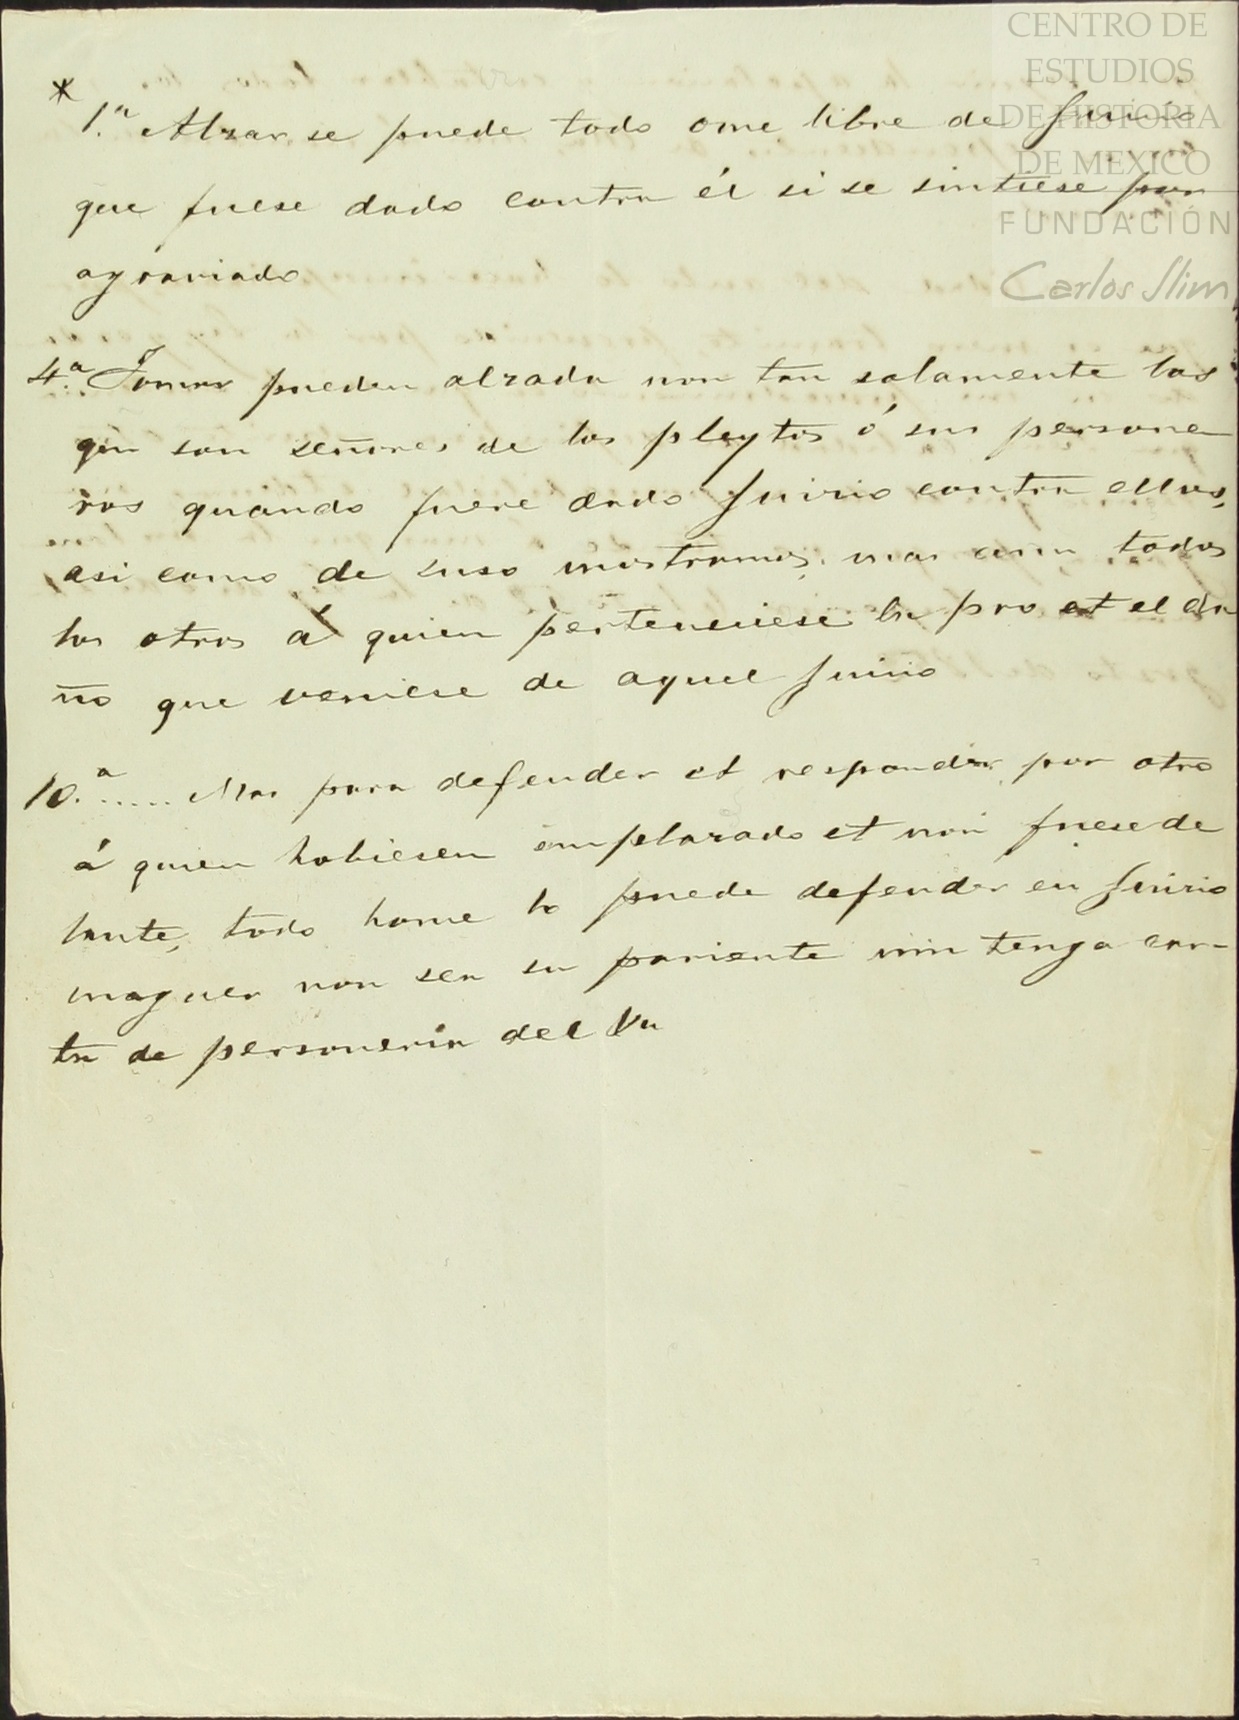 CENTRO DE
ESTUDIOS
DE HISTORIA
DE MEXICO
FUNDACIÓN
Carlos Slim
*
1.a Alzar se puede todo ome libre de Juicio
que fuese dado contra él si se sintiese por
agraviado
4.a Tomar pueden alzada non tan solamente los
que son señores de los pleytos ó sus persone
ros quando fuere dado Juicio contra ellos,
asi como de suso mostramos, mas aun todos
los otros á quien perteneciese la pro et el da
ño que veniese de aquel Juicio
10.a ..... Mas para defender et responder por otro
á quien hobiesen emplazado et non fuese de
lante, todo home lo puede defender en Juicio
maguer non sea su pariente nin tenga car-
ta de personeria del Va